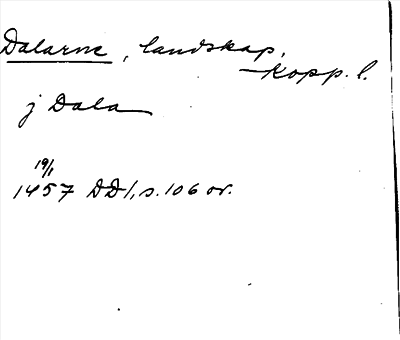 Dalarne, landskap,
Kopp. l.
j Dala
19/1
1457 DD 1, s. 106 or.